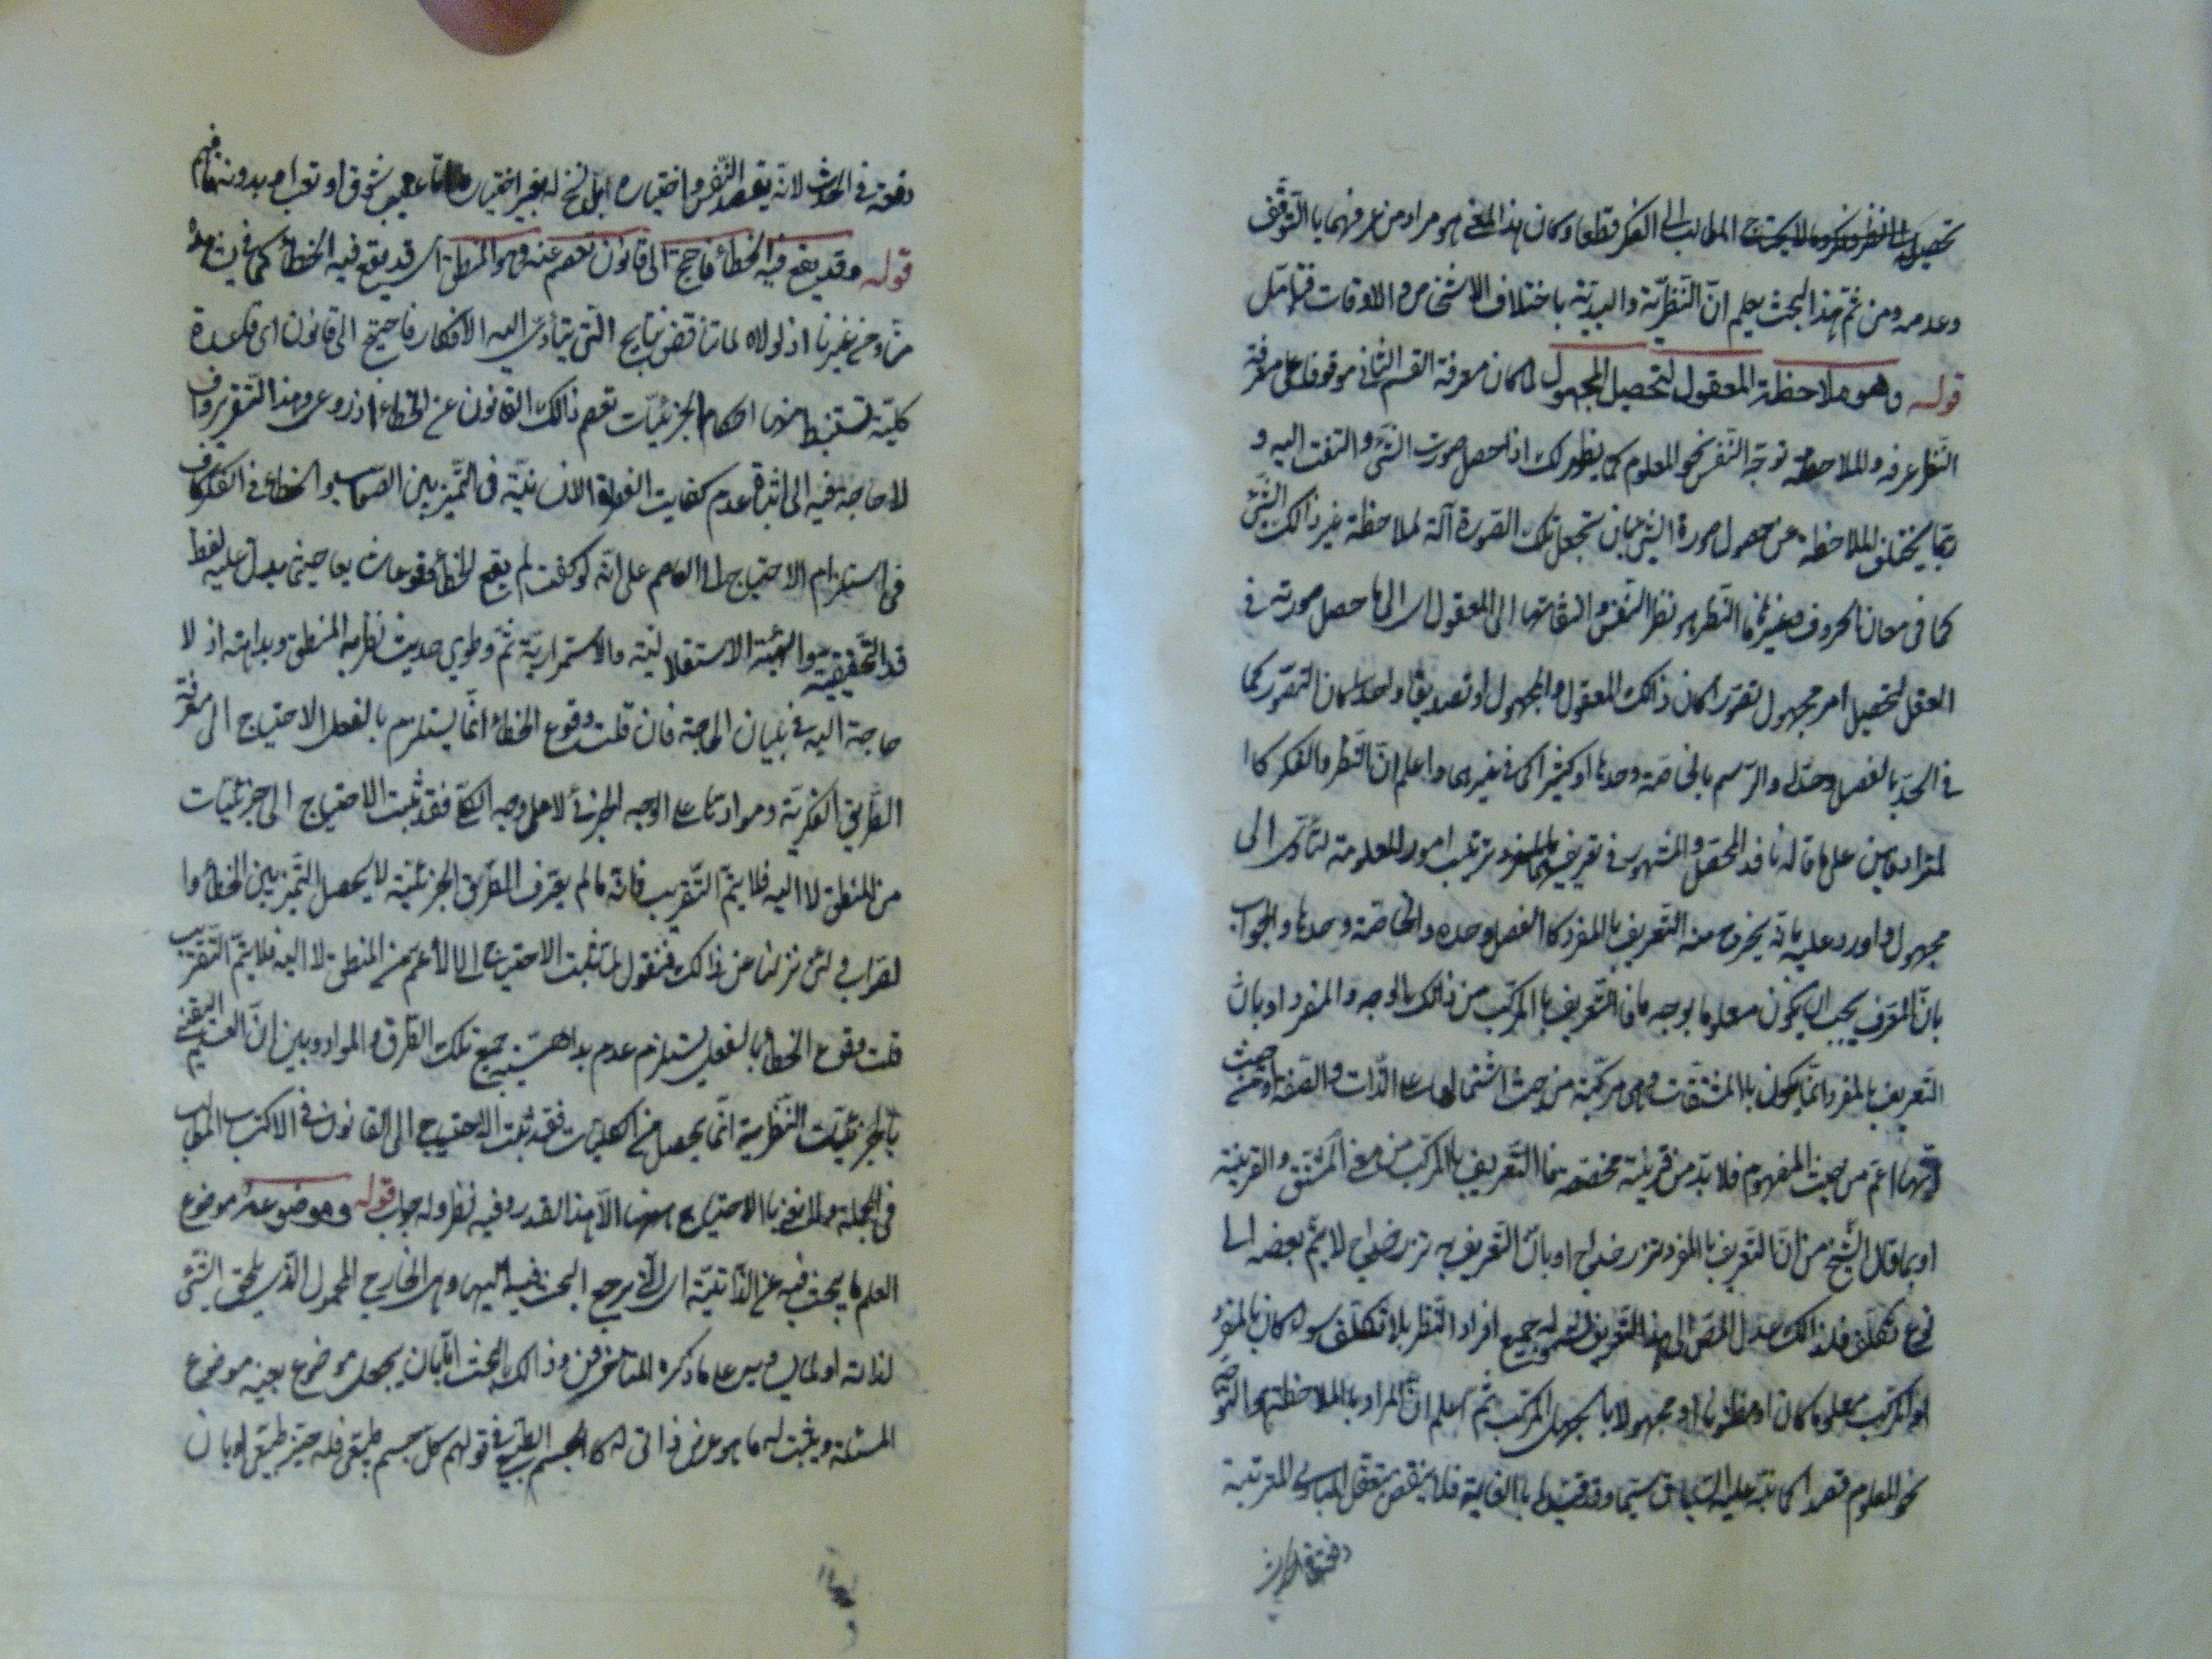 تحصيل المطالب الى الفكر قطعا وكان هذا المعنى هو مراد من عرفهما بالتوقف
وعدمه ومن ثم هذا البحث يعلم انّ النّظريّة والبديّة باختلاف الاشخاص والاوقات فتامّل
قوله وهو ملاحظة المعقول لتحصيل المجهول لما كان معرفة القسم الثّانى موقوفا على معرفة
النّظر عرفه والملاحظة توجّه النّفس نحو المعلوم كما يظهر لك اذا حصل صورت الشّئ والتفت اليه و
ربّما يختلف الملاحظة عن حصول صورة الشّئ بان تجعل تلك الصّورة آلة لملاحظة غير ذالك الشّئ
كما فى معان الحروف وغيرها فالنّظر هو نظر النّفس والتفاتها الى المعقول اى الى ما حصل صورته فى
العقل لتحصيل امر مجهول تصوّر كان ذالك المعقول والمجهول او تصديقا واحدا كان التصوّر كما
فى الحدّ بالفصل وحده والرّسم بالخاصّة وحدها او كثيرا كما فى غيرها واعلم انّ النّظر والفكر كا
لمترادفين على ما قاله ناقد المحصّل والمشهور فى تعريفهما ترتيب امور المعلومة لتأدّى الى
مجهول واورد عليه بانّه يخرج منه التّعريف بالمفرد كا الفصل وحده والخاصّة وحدها والجواب
بانّ المعرّف يجب ان يكون معلوما بوجه ما فا التّعريف با المركّب من ذالك الوجه والمفرد او بانّ
التّعريف بالمفرد انّما يكون با المشتقّات وهى مركّبة من حيث اشتمالها على الذّات والصّفة او من حيث
انّها اعمّ من حيث المفهوم فلا بدّ من قرينة مخصّصة فا التّعريف با المركّب من معنى المشتق والقرينة
او بما قال الشّيخ من انّ التّعريف با المفرد نزر خداج او بانّ التّعريف به نزر خداج لا يتمّ بعضه الى
نوع تكلّف فلذالك عدل المصنّف الى هذا التّعريف لشموله جميع افراد النّظر بلا تكلّف سواء كان بالمفرد
او المركّب معلوما كان او مظنونا او مجهولا با الجهل المركّب ثمّ اعلم انّ المراد با الملاحظة والتّوجّه
نحو المعلوم قصدا كما نبّه عليه السّياق سيّما وقد قيّد با الغاية فلا ينقض بتعقّل المبادى المترتبة
دفعة فى الحدس
دفعة فى الحدس لانّه بقصد النّفس واختياره بل سنح له بغير اختيار امّا عقيب شوق او تعب او بدونه فافهم
قوله وقد يقع فيه الخطأ فاحتيج الى قانون تعصم عنه وهو المنطق اى قد يقع فيه الخطأ كما نجد
منّا ومن غيرنا اذ لولاه لما تناقض نتايج التى يتأدّى اليه الافكار فاحتيج الى قانون اى قاعدة
كليّة تستنبط منها احكام الجزئيّات تعصم ذالك القانون عن الخطاء اذ روعى وهذا التّقرير واف
لا حاجة فيه الى اثبات عدم كفايت الفطرة الانسانيّة فى التّميز بين الصّواب والخطاء فى الفكر كاف
فى استلزام الاحتياج الى العاصم على انّه لو كفت لم يقع الخطأ وقوعا شايعا حيثما يدل عليه لفظ
قد التّحقيقيّة والهيئة الاستقبالانيّة والاستمراريّة ثمّ وطوى حديث نظرية المنطق وبداهته اذ لا
حاجة اليه فى بيان الحاجة فان قلت وقوع الخطأ انّما يستلزم بالفعل الاحتياج الى معرفة
الطّريق الفكريّة وموادّها على الوجه الجزئى لا على وجه الكلّى فقد ثبت الاحتياج الى جزئيّات
من المنطق لا اليه فلا يتمّ التّقريب فانّه مالم يعرف الطّريق الجزئيّة لا يحصل التّميز بين الخطأ وا
لصّواب ولئن نزلنا عن ذالك فنقول بل يثبت الاحتياج الى الاعم من المنطق لا اليه فلا يتمّ التّقريب
قلت وقوع الخطأ بالفعل يستلزم عدم بداهة جميع تلك الطّرق والمواد وبين انّ العلم اليقينى
با الجزئيّات النّظرية انّما يحصل من الكليّات فقد ثبت الاحتياج الى القانون فى الاكتساب المطالب
فى الجملة ولا نعنى با الاحتياج ههنا الاّ هذا القدر وفيه نظر وله جواب قوله وموضوعه موضوع
العلم ما يبحث فيه عن الذّاتيّة اى التى يرجع البحث فيه اليها وهى الخارج المحمول الّذى يلحق الشّئ
لذاته او لما يساويه على ما ذكره المتاخّرون وذالك البحث امّا بان يجعل موضوع بعينه موضوع
المسئلة ويثبت له ما هو عرض ذاتى له كا الجسم الطّبيعى فى قولهم كل جسم طبيعى فله حيّز طبيعى او بان